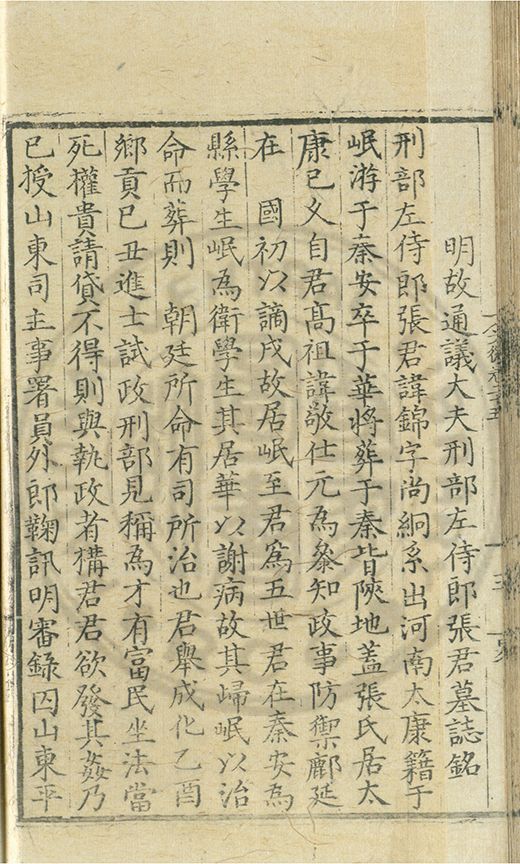 明故通議大夫刑部左侍郎張君墓誌銘
刑部左侍郎張君諱錦字尚絅系出河南太康籍于
岷游于秦安卒于華將葬于秦皆陝地蓋張氏居太
康已乆自君髙祖諱敬仕元為叅知政事防禦鄜延
在　國初以謫戍故居岷至君爲五世君在秦安為
縣學生岷為衛學生其居華以謝病故其歸岷以治
命而葬則　朝廷所命有司所治也君舉成化乙酉
鄉貢已丑進士試政刑部見稱為才有富民坐法當
死權貴請貸不得則與執政者構君君欲發其姦乃
已授山東司主事署員外郎鞠訊明審錄囚山東平